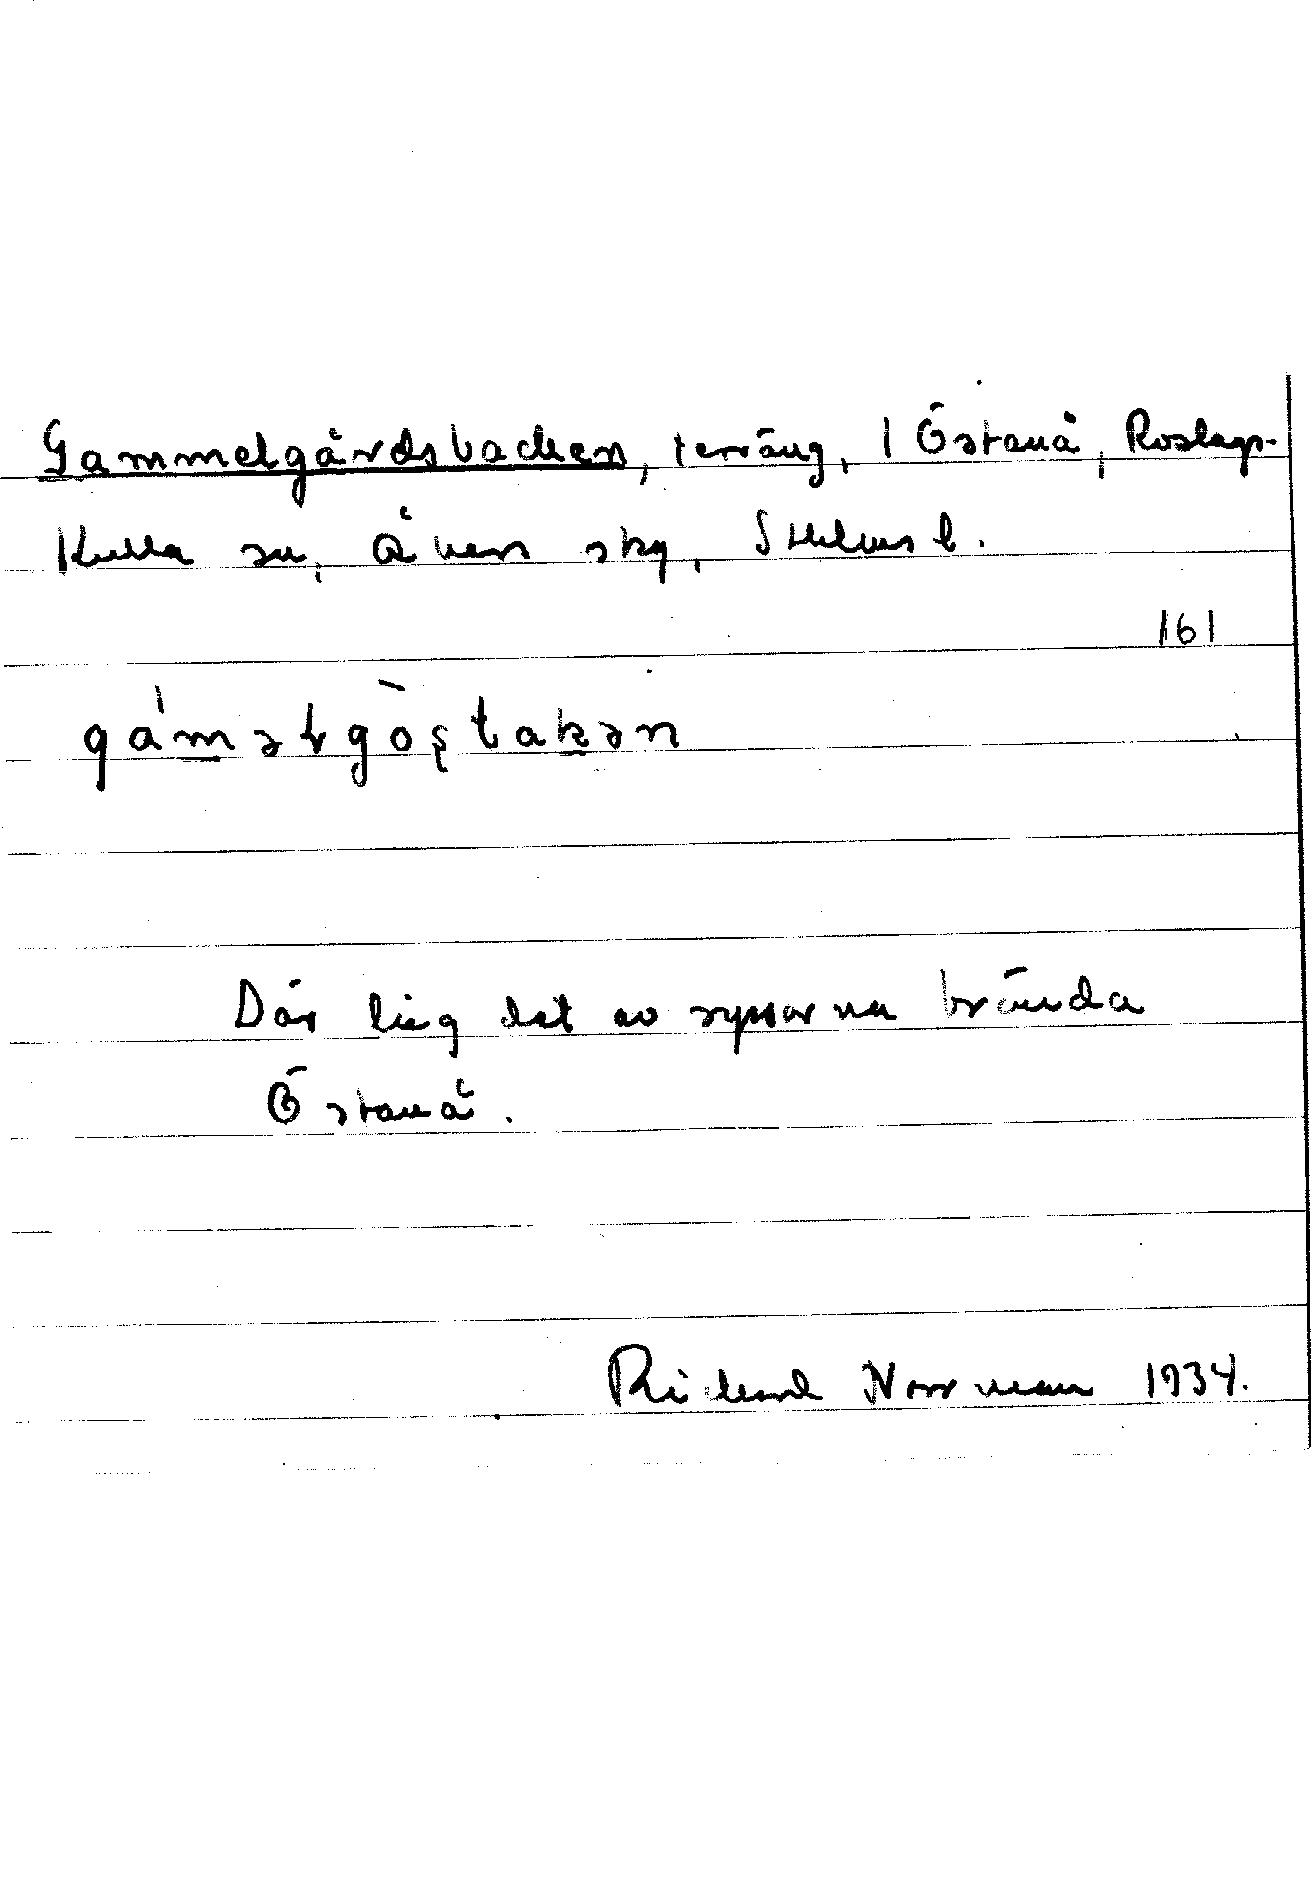 Gammelgårdsbacken, terräng, 1 Östanå, Roslags-
Kulla sn, Åkers skg, Sthlms l.
161
Där låg det av ryssarna brända
Östanå.
Rickard Norrman 1934.